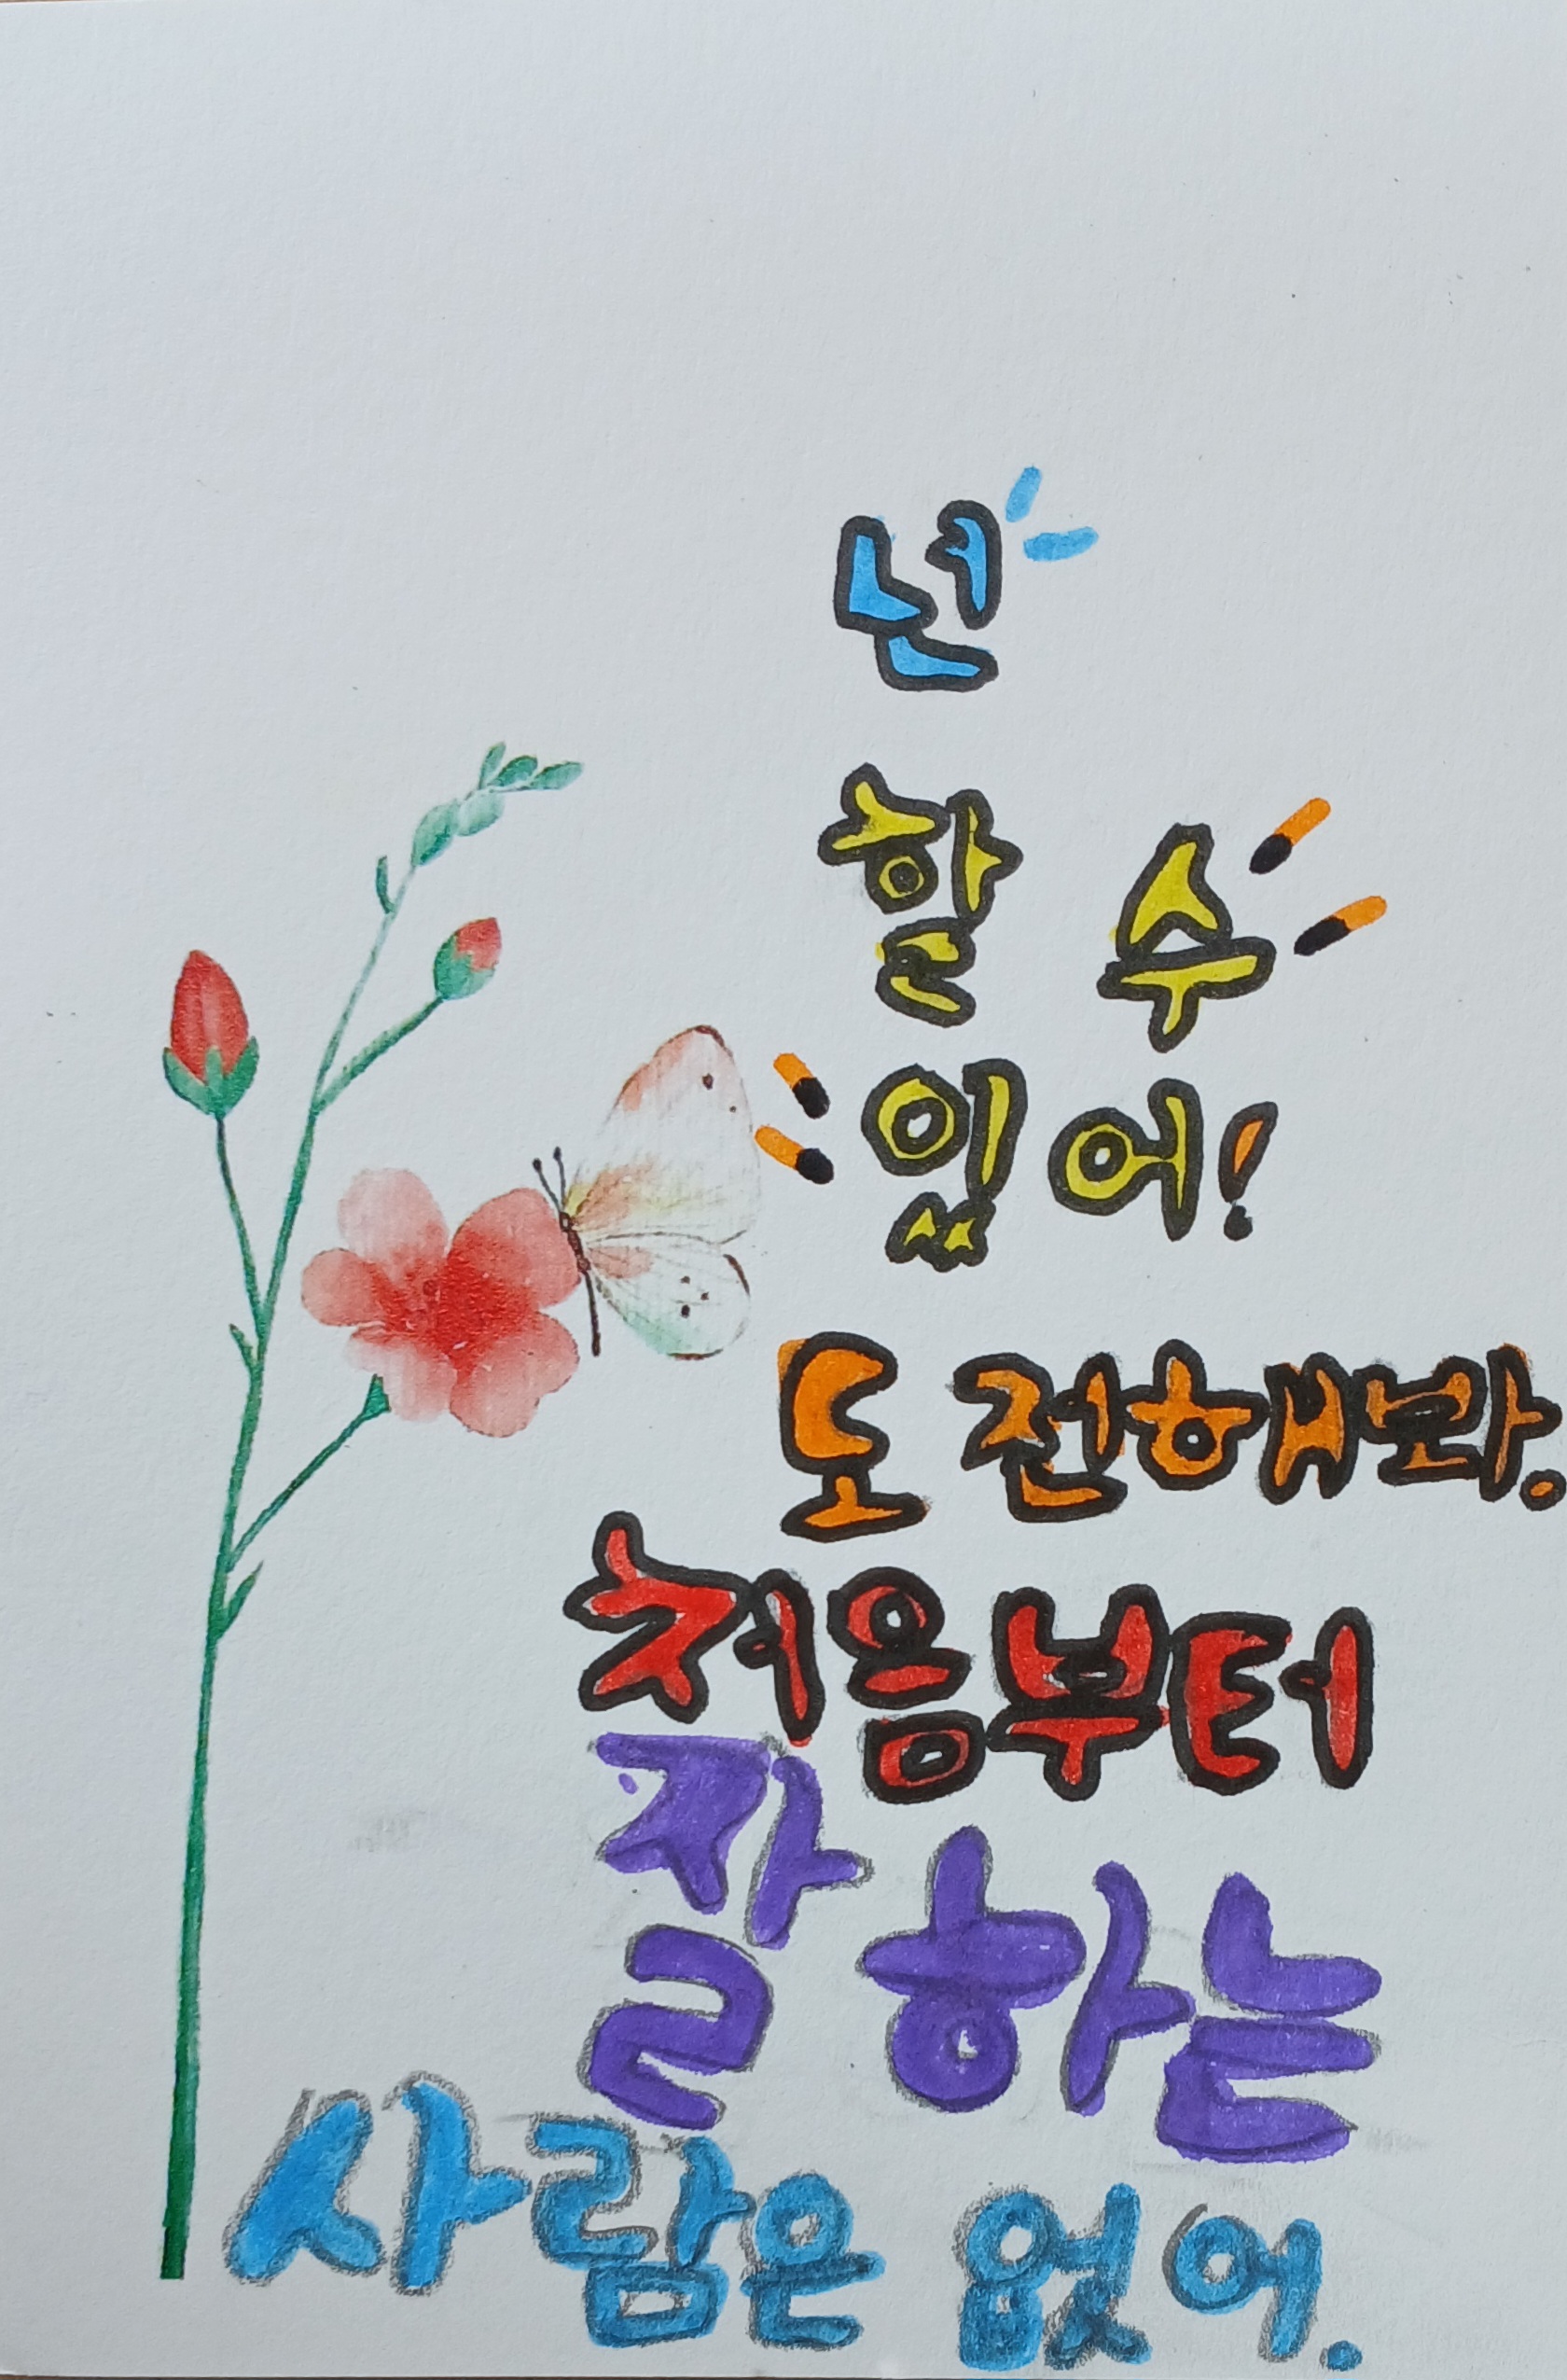 넌
할 수
있어!
도전해봐.
처음부터
잘하는
사람은 없어.